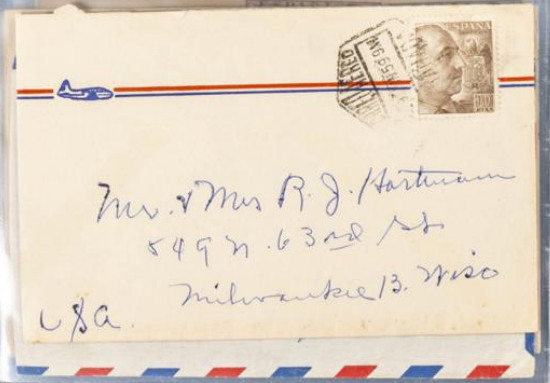 ESPAÑA
CORREO AEREO
Mr. & Mrs R. J. Hartmann
549 N. 63rd St.
Milwaukee 13. Wisc
USA.